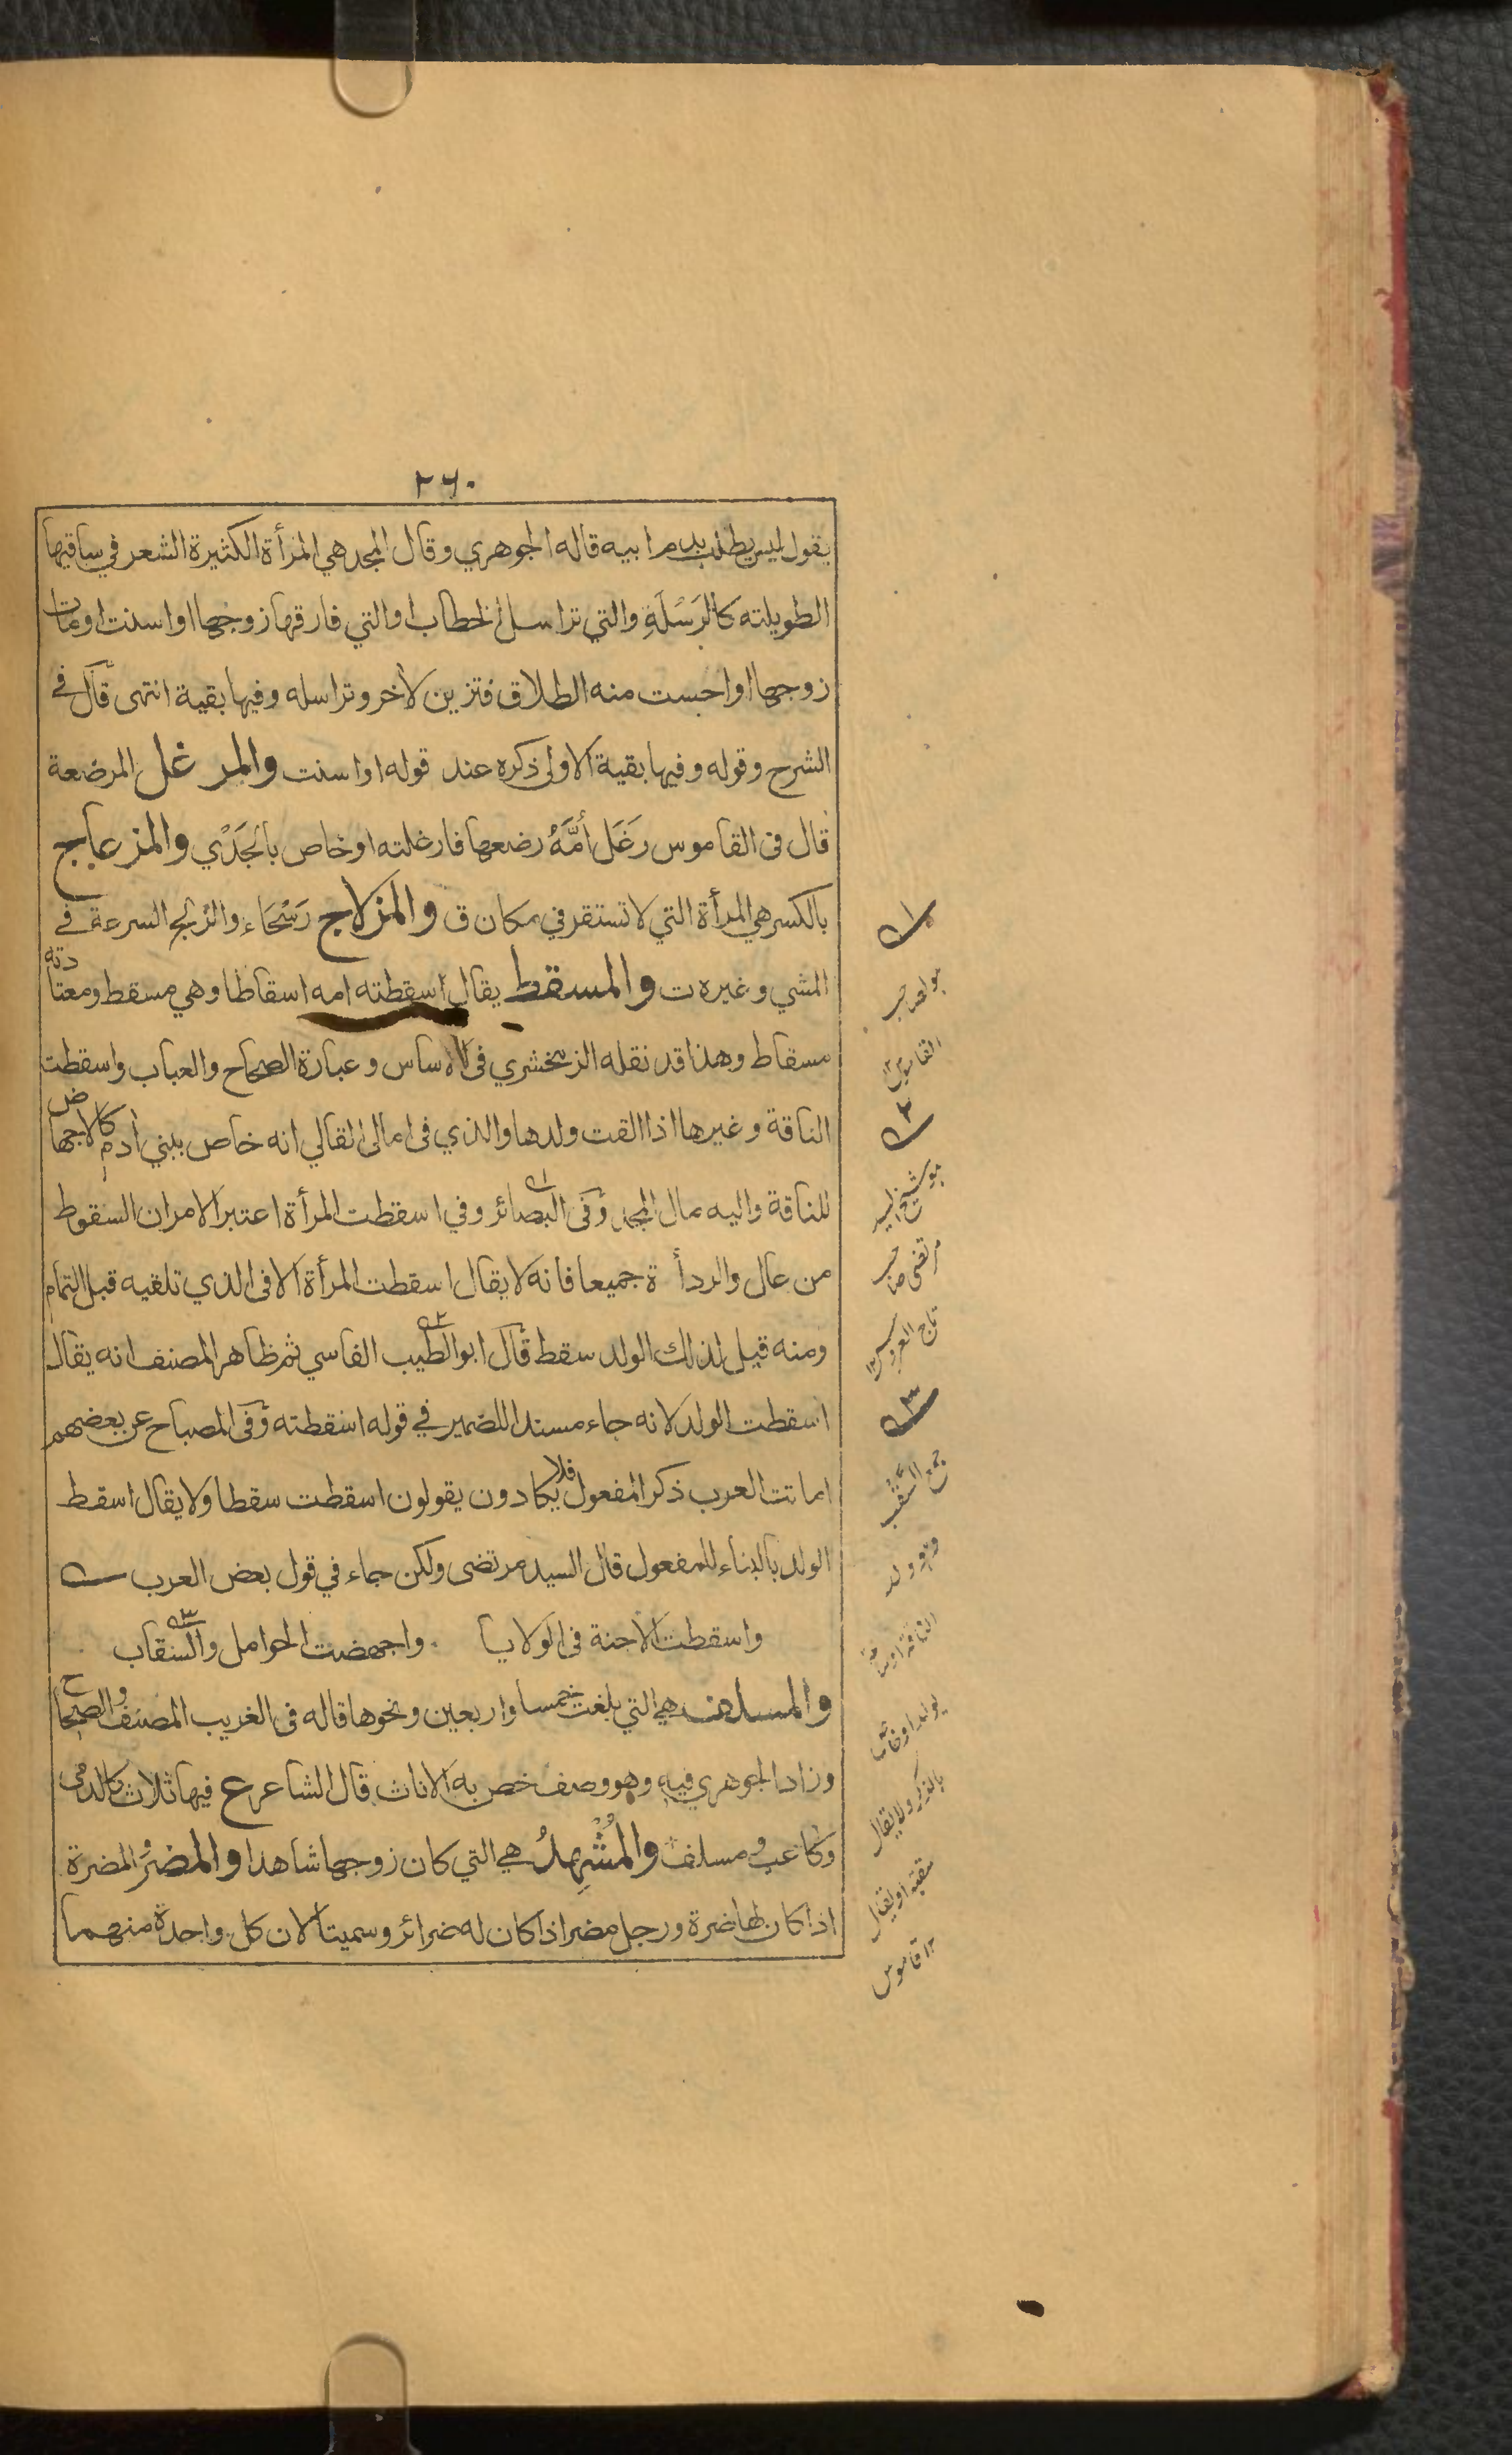 ٢٦٠
يقول ليس يطلب بدم ابيه قاله الجوهري وقال المجد هي المرأة الكثيرة الشعر في ساقيها
الطويلته كالرَسْلَةِ والتي تراسل الخطاب او التي فارقها زوجها او اسنت او مات
زوجها او احست منه الطلاق فتزين لآخر وتراسله وفيها بقية انتهى قال في
الشرح وقوله وفيها بقية الاولى ذكره عند قوله او اسنت والمرغل المرضعة
قال في القاموس رَغَل أمَّهُ رضعها فارغلته او خاص بالجَدْي والمزعاج
بالكسر هي المرأة التي لا تستقر في مكان ق والمزلاج رَسْحَاء والزلج السرعة في
المشي وغيره ت والمسقط يقال اسقطته امه اسقاطا وهي مسقط ومعتادته
مسقاط وهذا قد نقله الزمخشري في الاساس وعبارة الصحاح والعباب واسقطت
الناقة وغيرها اذا القت ولدها والذي في امالي القالي انه خاص ببني آدم كالاجهاض
للناقة واليه مال المجد وفي البصائر وفي اسقطت المرأة اعتبر الامران السقوط
من عال والرداءة جميعا فانه لا يقال اسقطت المرأة الا في الذي تلقيه قبل التمام
ومنه قيل لذلك الولد سقط قال ابو الطيب الفاسي ثم ظاهر المصنف انه يقال
اسقطت الولد لانه جاء مسندا للضمير في قوله اسقطته وفي المصباح عن بعضهم
اماتت العرب ذكر المفعول فلا يكادون يقولون اسقطت سقطا ولا يقال اسقط
الولد بالبناء للمفعول قال السيد مرتضى ولكن جاء في قول بعض العرب
واسقطت الاجنة في الولايا واجهضت الحوامل والسقاب
والمسلف هي التي بلغت خمسا واربعين ونحوها قاله في الغريب المصنف والصحاح
وزاد الجوهري فيه وهو وصف خص به الاناث قال الشاعر ع فيها ثلاث كالدمى
وكاعب ومسلف والمُشْهِدُ هي التي كان زوجها شاهدا والمضرّ المضرة
اذا كان لها ضرة ورجل مضر اذا كان له ضرائر وسميتا لان كل واحدة منهما
١
هو صاحب
القاموس ١٢
٢
هو شيخ السيد
مرتضى صاحب
تاج العروس ١٢
٣
جمع السَّقْب
وهو ولد
الناقة او ساعة
يولد او خاص
بالذكر ولا يقال
سقبة او يقال
١٢ قاموس